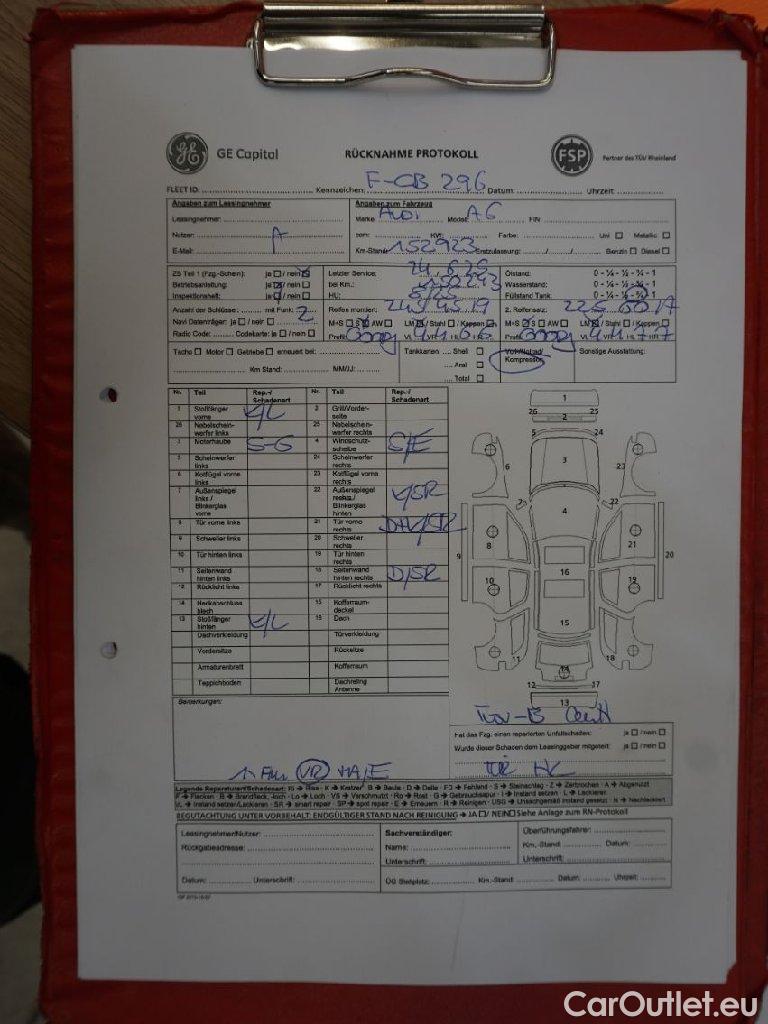 GE Capital RÜCKNAHME PROTOKOLL FSP Partner des TÜV Rheinland
FLEET ID: Kennzeichen: F-CB 296 Datum: Uhrzeit:
Angaben zum Leasingnehmer Angaben zum Fahrzeug
Leasingnehmer: Marke AUDI Modell A6 FIN
Nutzer: A kW: Farbe: Uni Metallic
E-Mail: Km-Stand: 152923 Erstzulassung: Benzin Diesel
ZB Teil 1 (Fzg.-Schein): ja / nein Letzter Service: Ölstand: 0 - ¼ - ½ - ¾ - 1
Betriebsanleitung: ja / nein bei Km.: Wasserstand: 0 - ¼ - ½ - ¾ - 1
Inspektionsheft: ja / nein HU: Füllstand Tank: 0 - ¼ - ½ - ¾ - 1
Anzahl der Schlüssel: mit Funk: 2 Reifen montiert: 245 45 19 2. Reifensatz:
Navi Datenträger: ja / nein M+S S AW LM / Stahl / Kappen M+S S AW LM / Stahl / Kappen
Radio Code: Codekarte: ja / nein Profil Profil
Tacho Motor Getriebe erneuert bei: Tankkarten Shell Sonstige Ausstattung:
Aral Kompressor
Km Stand: MM/JJ: Total
Nr. Teil Rep.-/ Schadenart Nr. Teil Rep.-/ Schadenart
1 Stoßfänger vorne K/L 2 Grill/Vorderseite
26 Nebelscheinwerfer links 25 Nebelscheinwerfer rechts
3 Motorhaube S-G 4 Windschutzscheibe S/E
5 Scheinwerfer links 24 Scheinwerfer rechts
6 Kotflügel vorne links 23 Kotflügel vorne rechts
7 Außenspiegel links / Blinkerglas vorne 22 Außenspiegel rechts / Blinkerglas hinten K/SR
8 Tür vorne links 21 Tür vorne rechts
9 Schweller links 20 Schweller rechts
10 Tür hinten links 19 Tür hinten rechts
11 Seitenwand hinten links 18 Seitenwand hinten rechts D/SR
12 Rücklicht links 17 Rücklicht rechts
14 Heckabschlussblech 15 Kofferraumdeckel
13 Stoßfänger hinten K/L 16 Dach
Dachverkleidung Türverkleidung
Vordersitze Rücksitze
Armaturenbrett Kofferraum
Teppichboden Dachreling Antenne
1
26 2 25
5 24
6 3 23
7 4 22
8 21
9 20
10 16 19
15
11 14 18
12 17
13
Bemerkungen:
Hat das Fzg. einen reparierten Unfallschaden: ja / nein
Wurde dieser Schaden dem Leasinggeber mitgeteilt: ja / nein
VR
Legende Reparaturen/Schadenart: Ri → Riss - K → Kratzer B → Beule - D → Delle - FJ → Fehlend - S → Steinschlag - Z → Zerbrochen - A → Abgenutzt
F → Flecken - B → Brandfleck, -loch - Lo → Loch - VS → Verschmutzt - Ro → Rost - G → Gebrauchsspur - I → Instand setzen - L → Lackieren
IL → Instand setzen/Lackieren - SR → smart repair - SP → spot repair - E → Erneuern - R → Reinigen - USG → Unsachgemäß instand gesetzt - N → Nachlackiert
BEGUTACHTUNG UNTER VORBEHALT: ENDGÜLTIGER STAND NACH REINIGUNG → JA / NEIN Siehe Anlage zum RN-Protokoll
Leasingnehmer/Nutzer: Sachverständiger: Überführungsfahrer:
Rückgabeadresse: Name: Km.-Stand: Datum:
Unterschrift: Unterschrift:
Datum: Unterschrift: ÜG Stellplatz: Km.-Stand Datum: Uhrzeit:
CarOutlet.eu